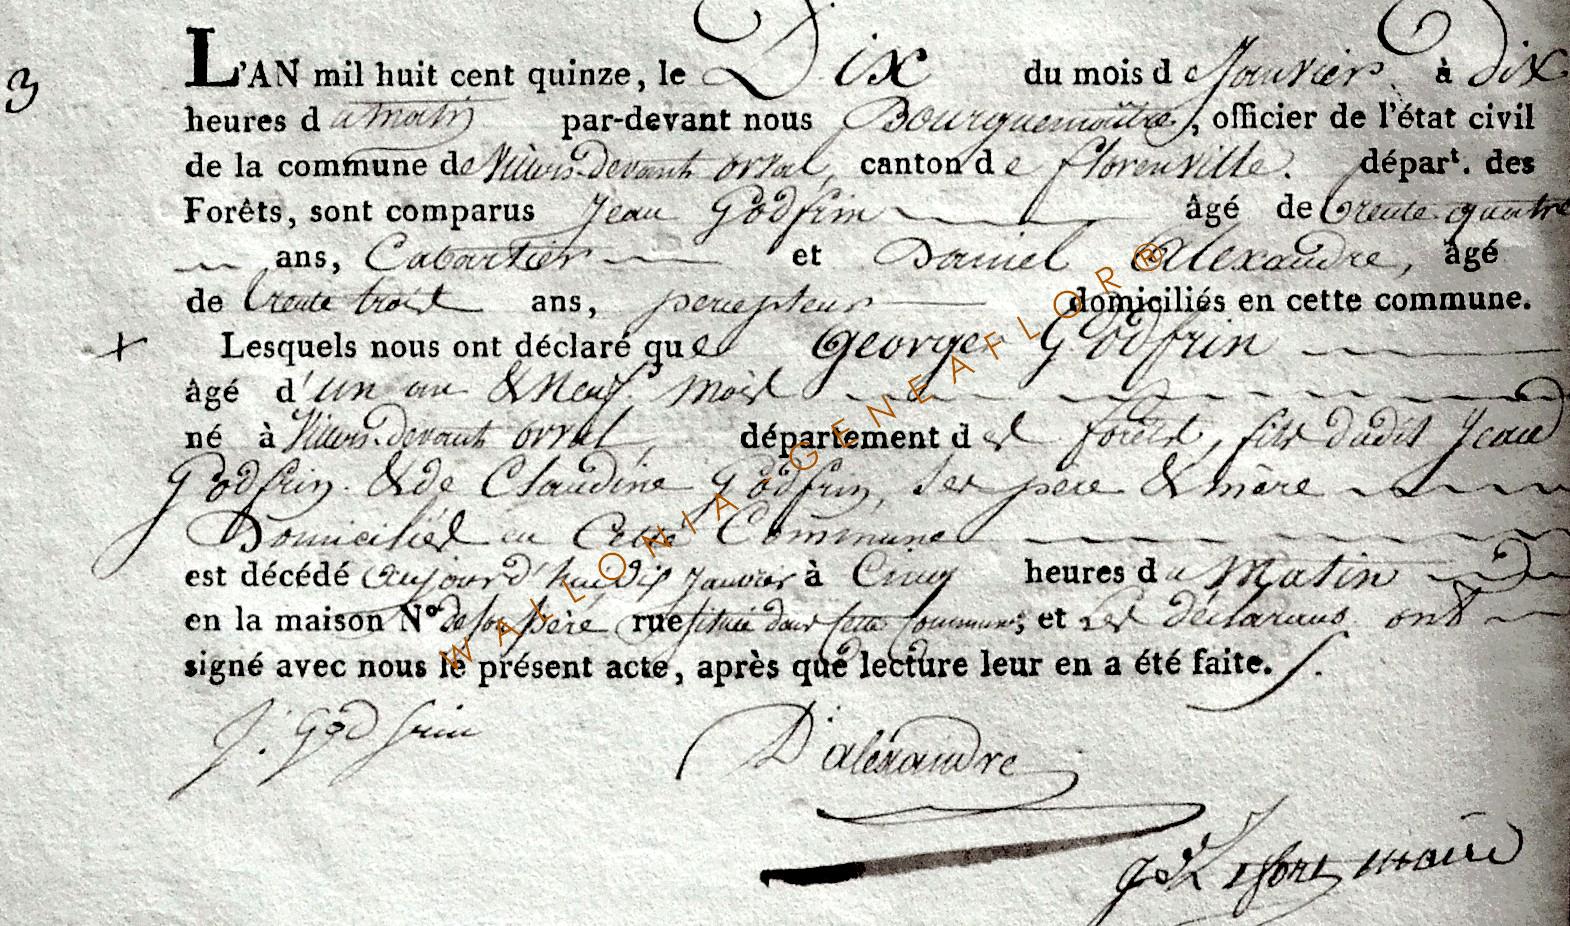 3
L'AN mil huit cent quinze, le Dix du mois de Janvier à dix
heures du matin par-devant nous Bourguemaître, officier de l'état civil
de la commune de Villers-devant orval, canton de florenville. départ. des
Forêts, sont comparus Jean Godfrin âgé de trente quatre
ans, Cabartier et Daniel Alexandre, âgé
de trente trois ans, percepteur domiciliés en cette commune.
+ Lesquels nous ont déclaré que George Godfrin
âgé d'un an & Neuf mois
né à Villers-devant orval, département des forêts, fils dudit Jean
Godfrin & de Claudine Godfrin, ses père & mère
Domiciliés en Cette Commune
est décédé aujourd'hui dix Janvier à Cinq heures du Matin
en la maison N° de son père rue située dans cette Commune; et Les déclarans ont
signé avec nous le présent acte, après que lecture leur en a été faite.
J. Godfrin
D. alexandre
Lefort maire
WALLONIA-GENEAFLOR®